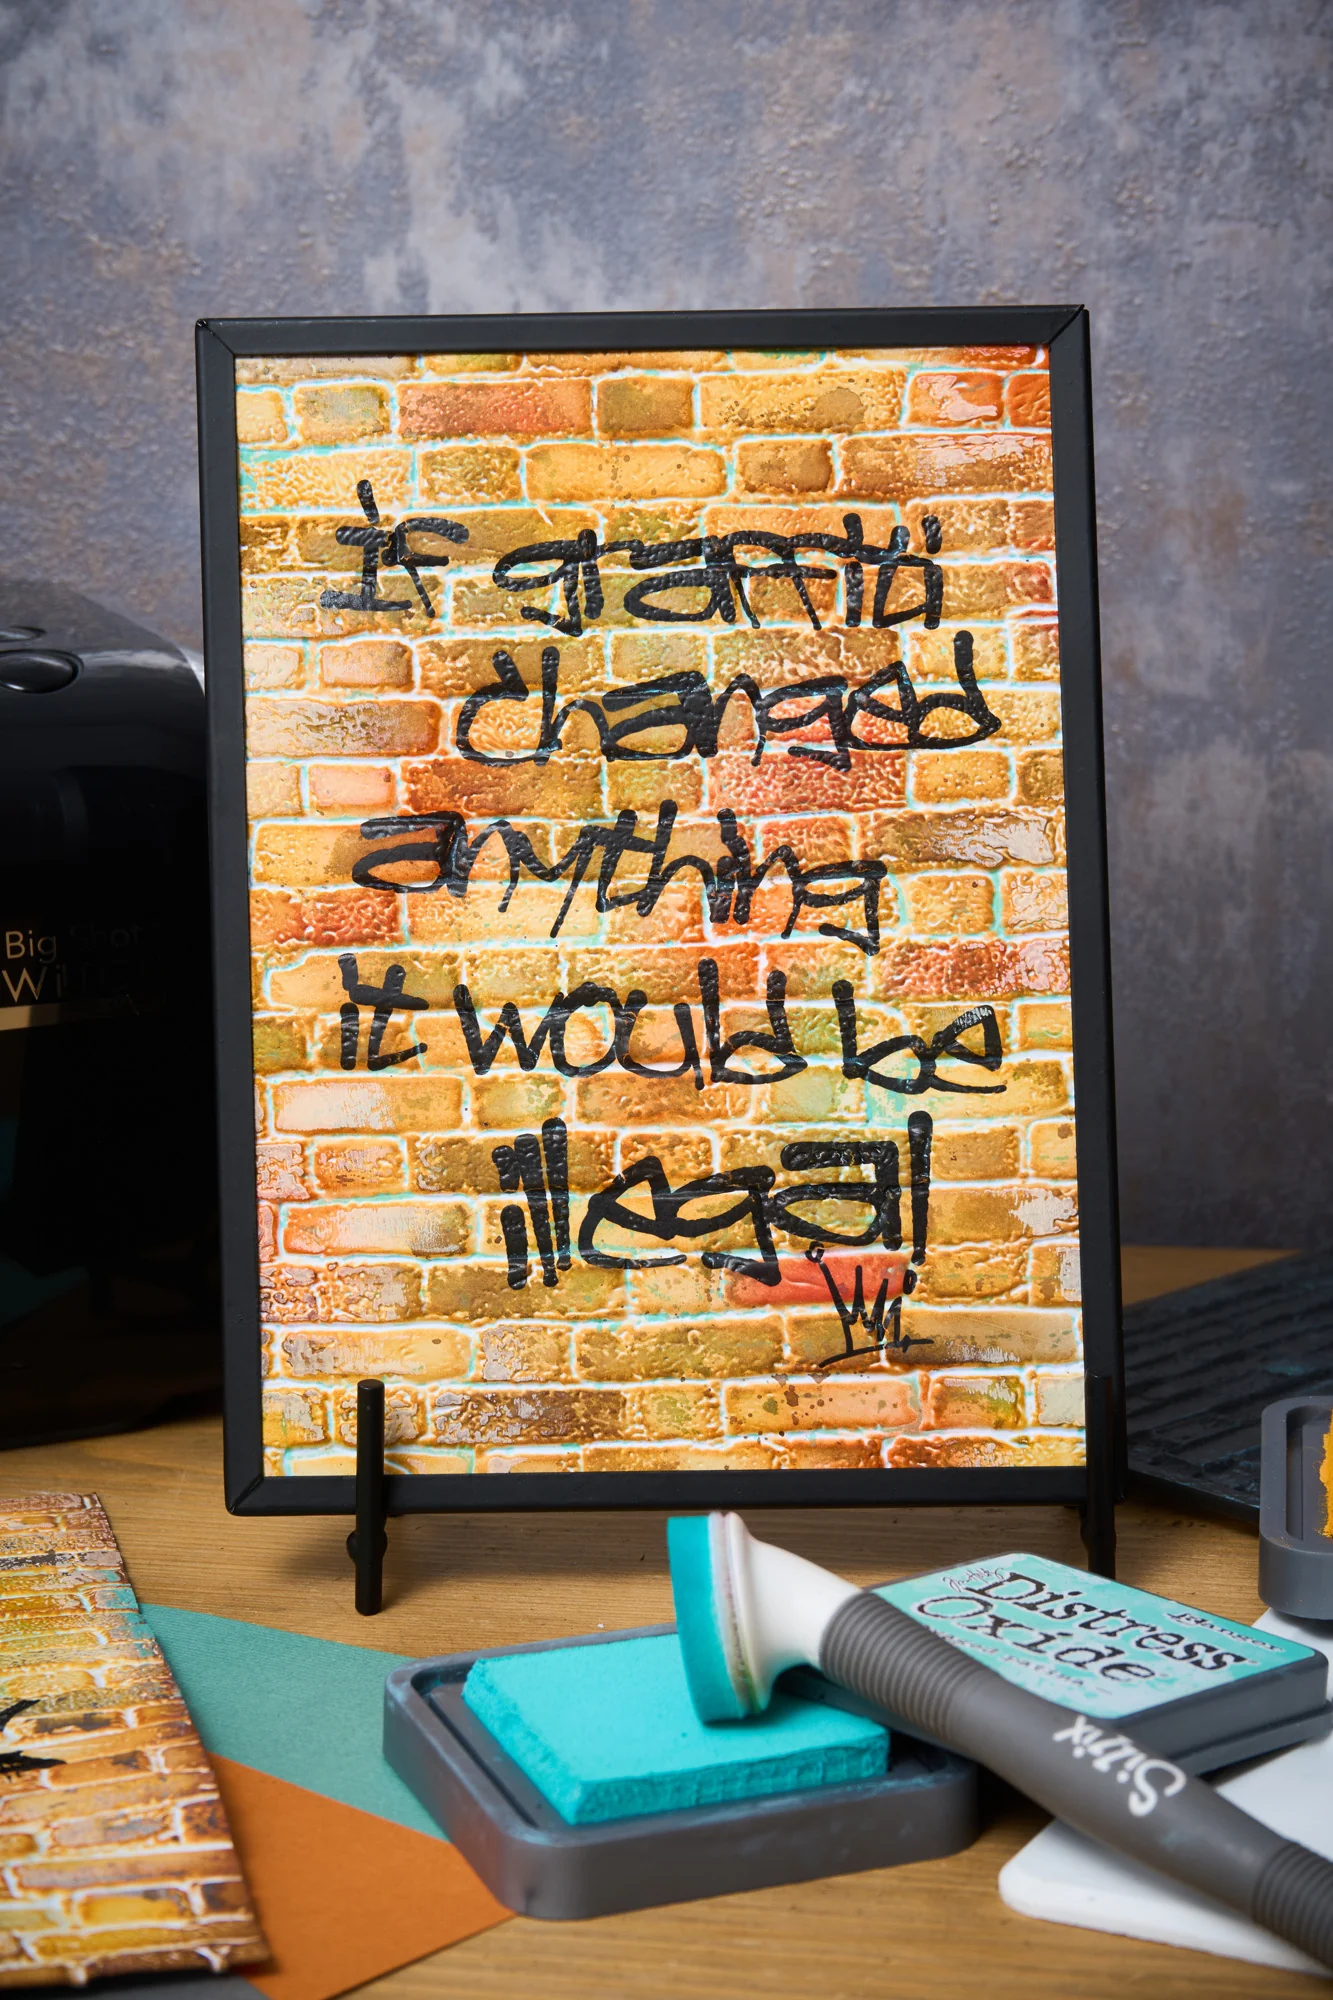 if graffiti
changed
anything
it would be
illegal
Big Shot
Distress
Oxide
Ranger
Sizzix